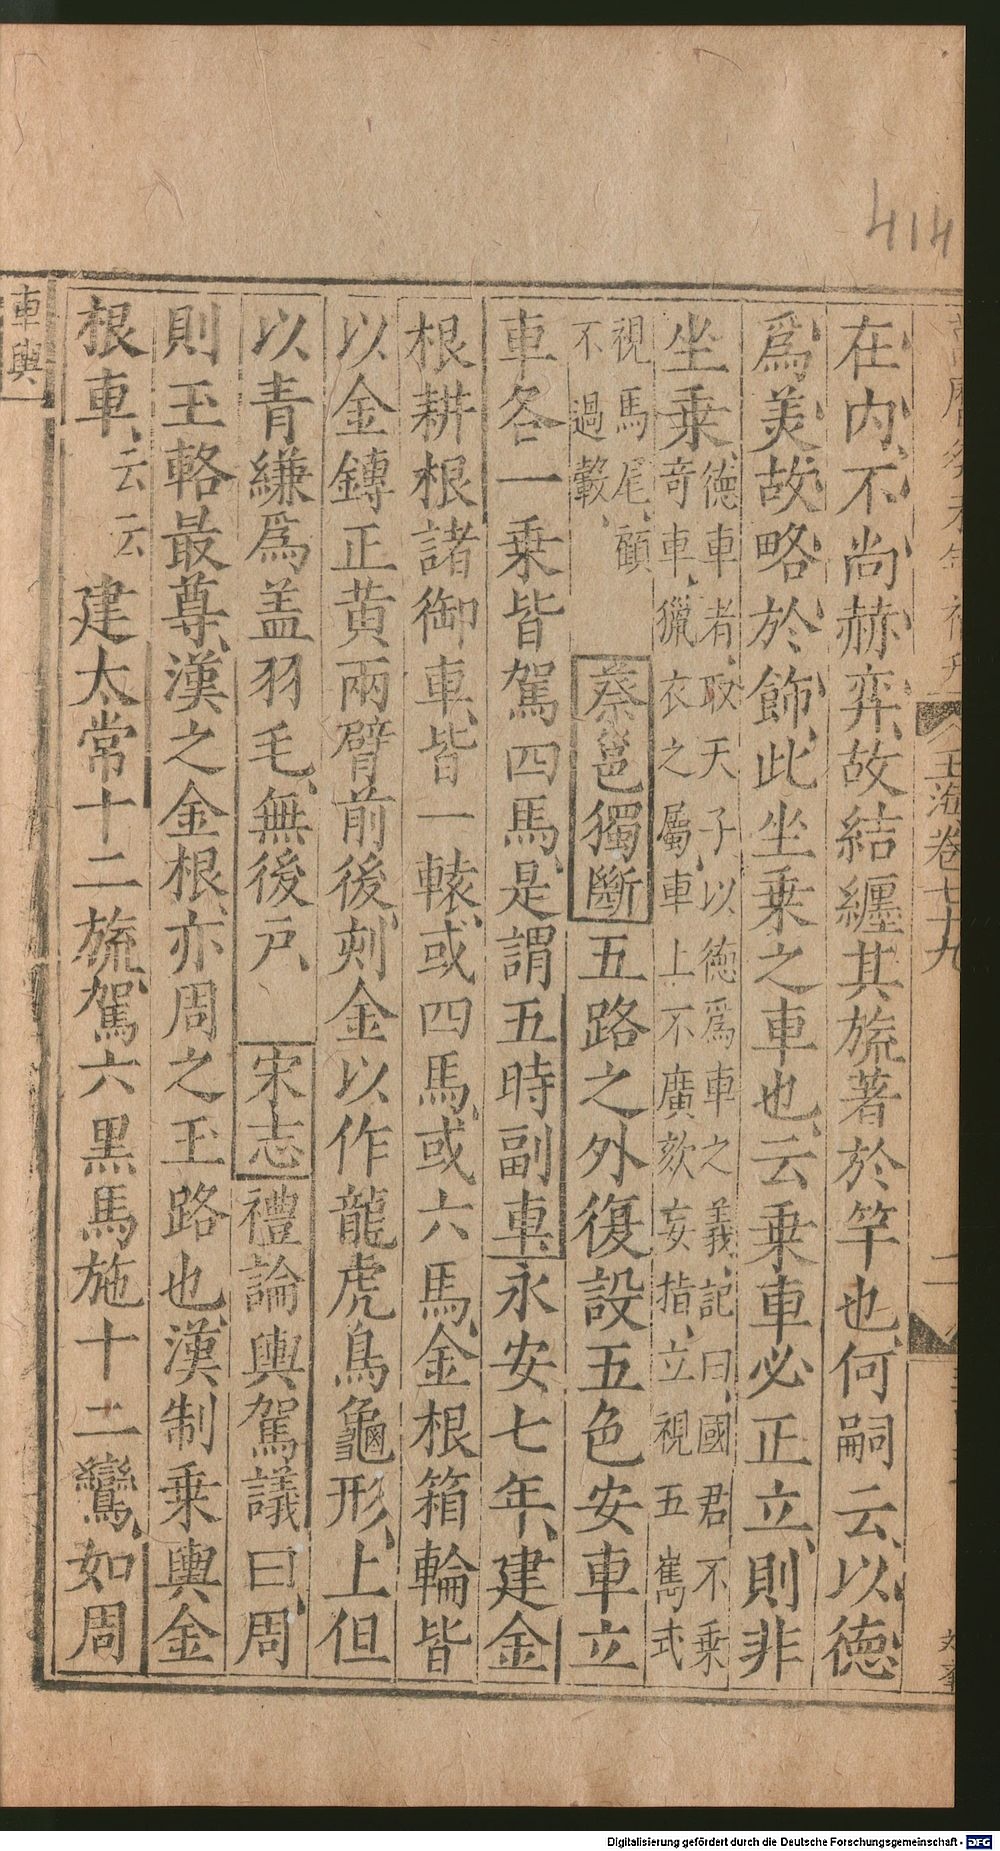 414
玉海卷七十九
二
在内不尚赫弈故結纏其旒著於竿也何嗣云以德
爲美故略於飾此坐乗之車也云乗車必正立則非
坐乗德車者取天子以德爲車之義記曰國君不乗
竒車獵衣之屬車上不廣欬妄指立視五雟式
視馬尾顧
不過轂
蔡邕獨斷五路之外復設五色安車立
車各一乗皆駕四馬是謂五時副車永安七年建金
根耕根諸御車皆一轅或四馬或六馬金根箱輪皆
以金鏄正黄兩臂前後刻金以作龍虎鳥龜形上但
以青縑爲盖羽毛無後戸宋志禮論輿駕議曰周
則玉輅最尊漢之金根亦周之玉路也漢制乗輿金
根車云云建太常十二旒駕六黒馬施十二鸞如周
車輿
Digitalisierung gefördert durch die Deutsche Forschungsgemeinschaft - DFG